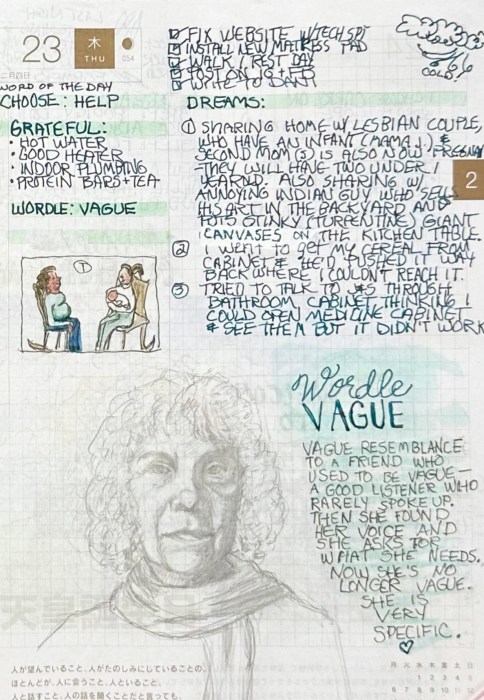 23
木
THU
054
二月四日
FIX WEBSITE W/TECH SPT
INSTALL NEW MATTRESS PAD
WALK / REST DAY
POST ON IG + FB
WRITE TO DANI
COLD!
WORD OF THE DAY
CHOOSE: HELP
GRATEFUL:
• HOT WATER
• GOOD HEATER
• INDOOR PLUMBING
• PROTEIN BARS + TEA
WORDLE: VAGUE
①
DREAMS:
① SHARING HOME W/ LESBIAN COUPLE,
WHO HAVE AN INFANT (MAMA 1) &
SECOND MOM (S) IS ALSO NOW PREGNANT
THEY WILL HAVE TWO UNDER 1
YEAR OLD. ALSO SHARING W/
ANNOYING INDIAN GUY WHO SELLS
HIS ART IN THE BACKYARD AND
PUTS STINKY (TURPENTINE) GIANT
CANVASES ON THE KITCHEN TABLE.
② I WENT TO GET MY CEREAL FROM
CABINET & HE'D PUSHED IT WAY
BACK WHERE I COULDN'T REACH IT.
③ TRIED TO TALK TO J&S THROUGH
BATHROOM CABINET THINKING I
COULD OPEN MEDICINE CABINET
& SEE THEM BUT IT DIDN'T WORK
2
Wordle
VAGUE
VAGUE RESEMBLANCE
TO A FRIEND WHO
USED TO BE VAGUE—
A GOOD LISTENER WHO
RARELY SPOKE UP.
THEN SHE FOUND
HER VOICE AND
SHE ASKS FOR
WHAT SHE NEEDS.
NOW SHE'S NO
LONGER VAGUE.
SHE IS
VERY
SPECIFIC.
♡
人が望んでいること、人がたのしみにしていることの、
ほとんどが、人に会うこと、人といること、
人と話すこと、人の話を聞くことだと言っても、
月 火 水 木 金 土 日
1 2 3 4 5